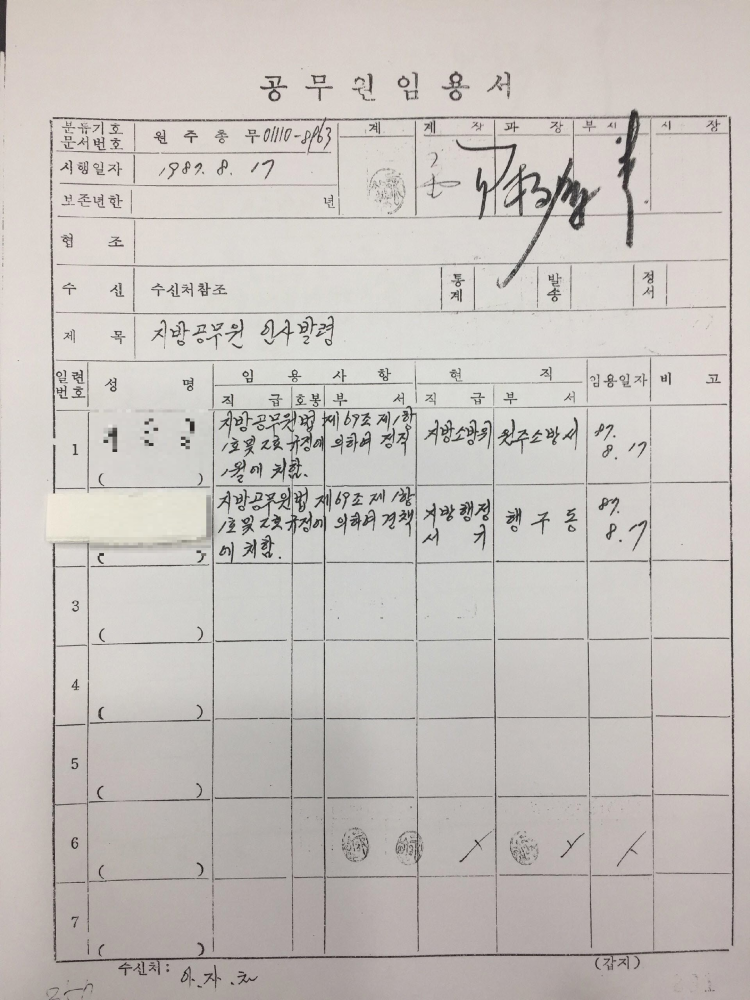 공무원임용서
분류기호
문서번호
원주총무01110-8963
계
계장
과장
부시
시장
시행일자
1987. 8. 17
보존년한
년
협조
수신
수신처참조
통계
발송
정서
제목
지방공무원 인사발령
일련번호
성명
임용사항
현직
임용일자
비고
직급
호봉
부서
직급
부서
1
지방공무원법 제69조 제1항
1호 및 2호 규정에 의하여 정직
1월에 처함.
지방소방위
원주소방서
87.
8. 17
( )
지방공무원법 제69조 제1항
1호 및 2호 규정에 의하여 견책
에 처함.
지방행정
서기
행구동
87.
8. 17
( )
3
( )
4
( )
5
( )
6
( )
7
( )
수신처:
(갑지)